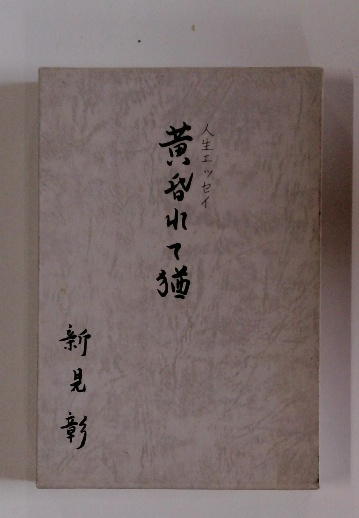 人生エッセイ
黄昏れて猶
新見彰